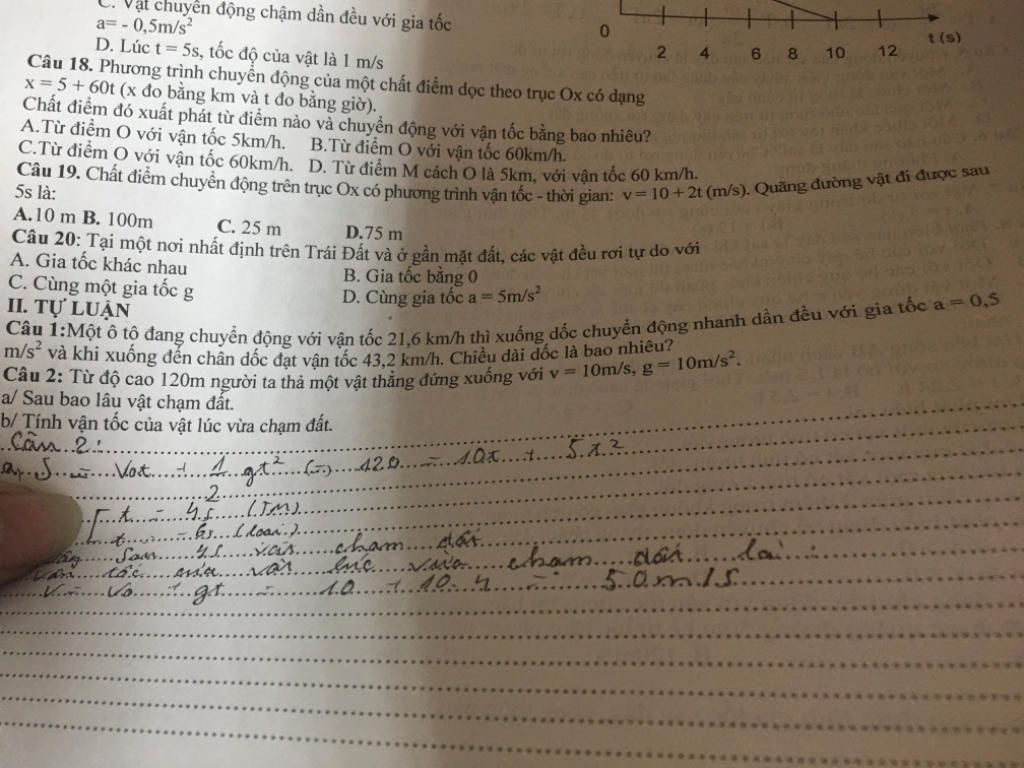 C. Vật chuyển động chậm dần đều với gia tốc
a= - 0,5m/s²
D. Lúc t = 5s, tốc độ của vật là 1 m/s
0 2 4 6 8 10 12 t (s)
Câu 18. Phương trình chuyển động của một chất điểm dọc theo trục Ox có dạng
x = 5 + 60t (x đo bằng km và t đo bằng giờ).
Chất điểm đó xuất phát từ điểm nào và chuyển động với vận tốc bằng bao nhiêu?
A.Từ điểm O với vận tốc 5km/h. B.Từ điểm O với vận tốc 60km/h.
C.Từ điểm O với vận tốc 60km/h. D. Từ điểm M cách O là 5km, với vận tốc 60 km/h.
Câu 19. Chất điểm chuyển động trên trục Ox có phương trình vận tốc - thời gian: v = 10 + 2t (m/s). Quãng đường vật đi được sau
5s là:
A.10 m B. 100m C. 25 m D.75 m
Câu 20: Tại một nơi nhất định trên Trái Đất và ở gần mặt đất, các vật đều rơi tự do với
A. Gia tốc khác nhau B. Gia tốc bằng 0
C. Cùng một gia tốc g D. Cùng gia tốc a = 5m/s²
II. TỰ LUẬN
Câu 1:Một ô tô đang chuyển động với vận tốc 21,6 km/h thì xuống dốc chuyển động nhanh dần đều với gia tốc a = 0,5
m/s² và khi xuống đến chân dốc đạt vận tốc 43,2 km/h. Chiều dài dốc là bao nhiêu?
Câu 2: Từ độ cao 120m người ta thả một vật thẳng đứng xuống với v = 10m/s, g = 10m/s².
a/ Sau bao lâu vật chạm đất.
b/ Tính vận tốc của vật lúc vừa chạm đất.
Câu 2:
a, S = Vot + 1/2 gt² (=) 120 = 10t + 5t²
[ t = 4s (TM)
t = 6s (loại)
sau 4s vật chạm đất
vận tốc của vật lúc vừa chạm đất là :
V = Vo + gt = 10 + 10.4 = 50m/s